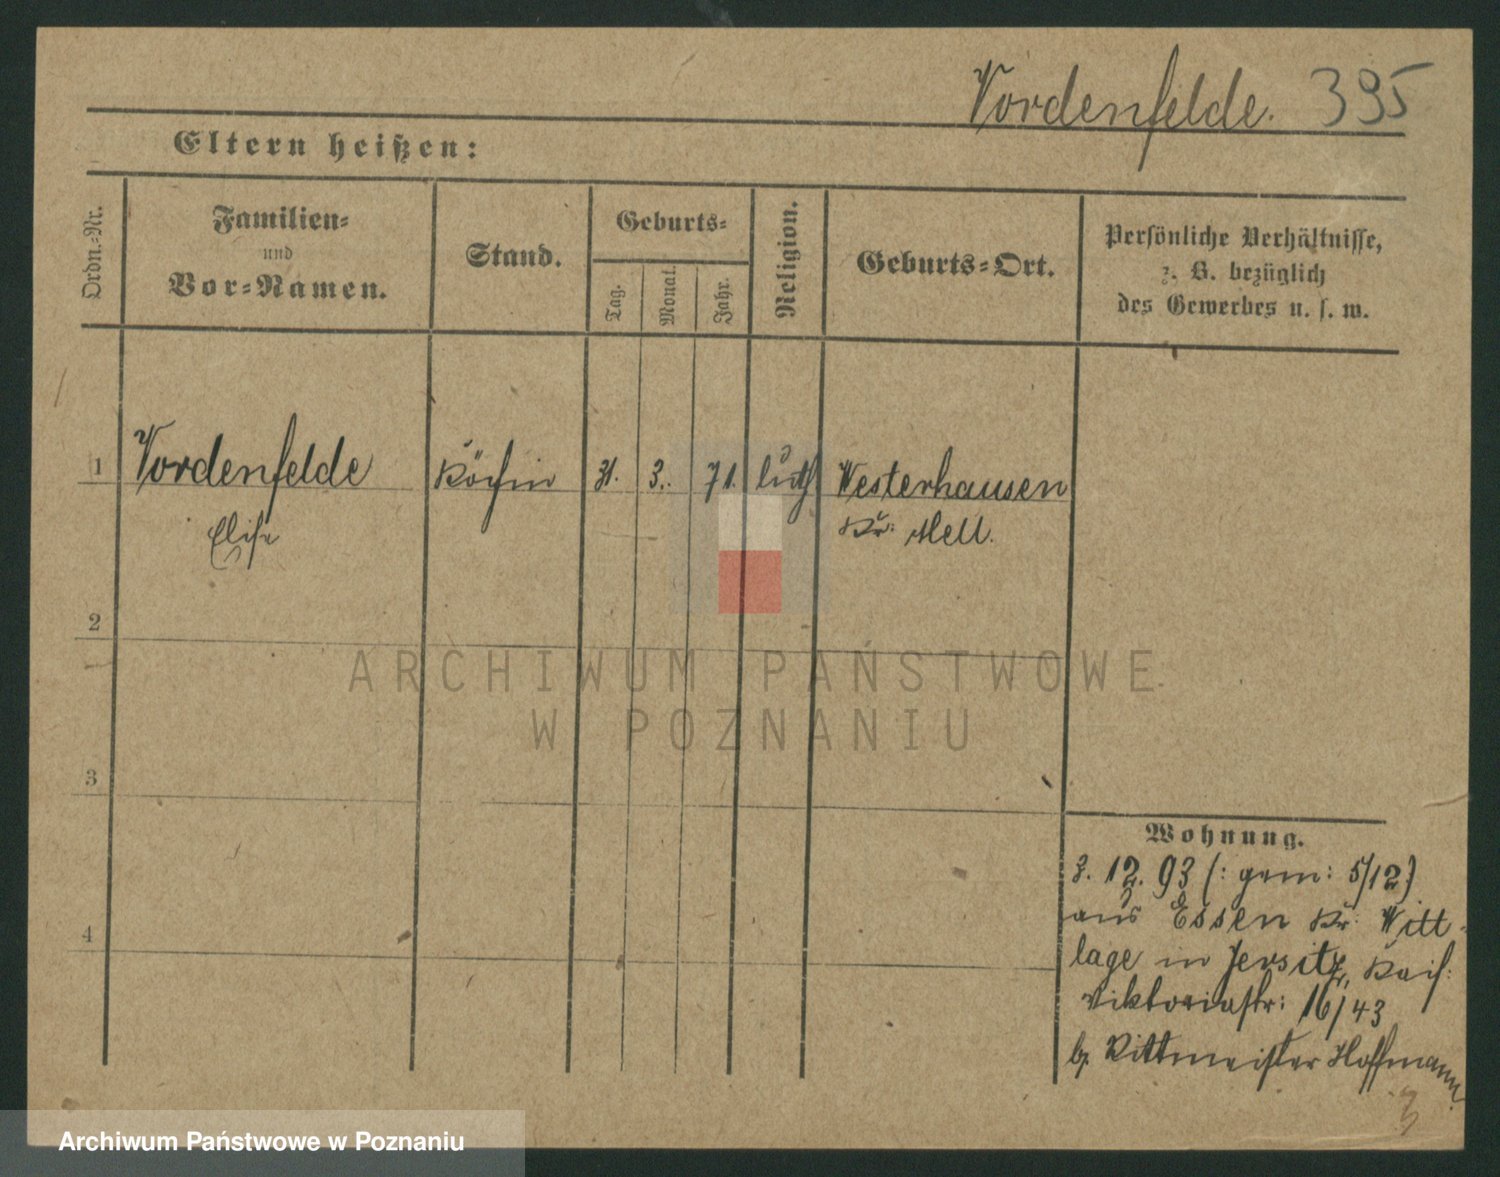 Vordenfelde. 395
Eltern heißen:
Ordn.-Nr.
Familien-
und
Vor-Namen.
Stand.
Geburts-
Tag.
Monat.
Jahr.
Religion.
Geburts-Ort.
Persönliche Verhältnisse,
z. B. bezüglich
des Gewerbes u. s. w.
1 Vordenfelde Köchin 31. 3. 71. luth Westerhausen
Elise Kr: Mell.
2
3
4
ARCHIWUM PAŃSTWOWE
W POZNANIU
Wohnung.
3. 12. 93 (: gem: 5/12)
aus Essen Kr: Witt-
lage in Jersitz, Kais:
Viktoriastr: 16/43
b. Rittmeister Hoffmann.
Archiwum Państwowe w Poznaniu